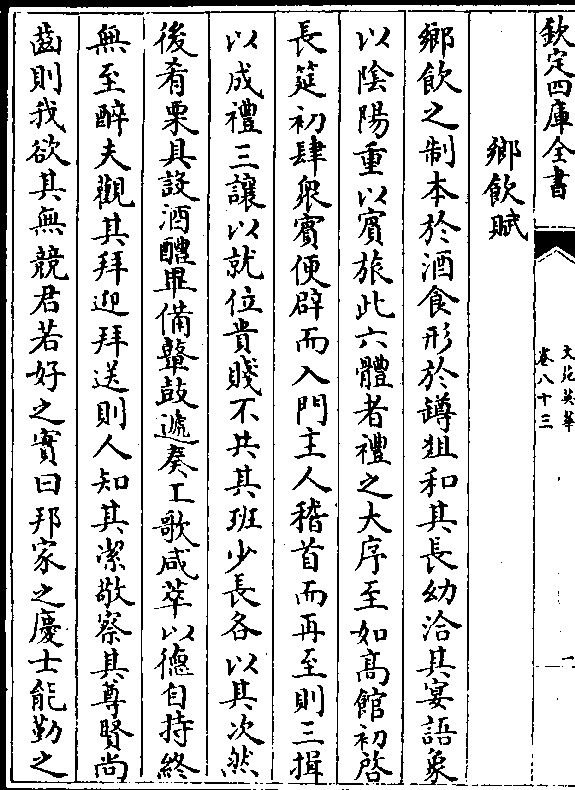 欽定四庫全書
文苑英華
卷八十三
一
鄉飲賦
鄉飲之制本於酒食形於罇俎和其長幼洽其宴語象
以陰陽重以賓旅此六體者禮之大序至如高館初啓
長筵初肆衆賓便辟而入門主人稽首而再至則三揖
以成禮三讓以就位貴賤不共其班少長各以其次然
後肴栗具設酒醴畢備鼙鼓遞奏工歌咸萃以德自持終
無至醉夫觀其拜迎拜送則人知其潔敬察其尊賢尚
齒則我欲其無競君若好之實曰邦家之慶士能勤之